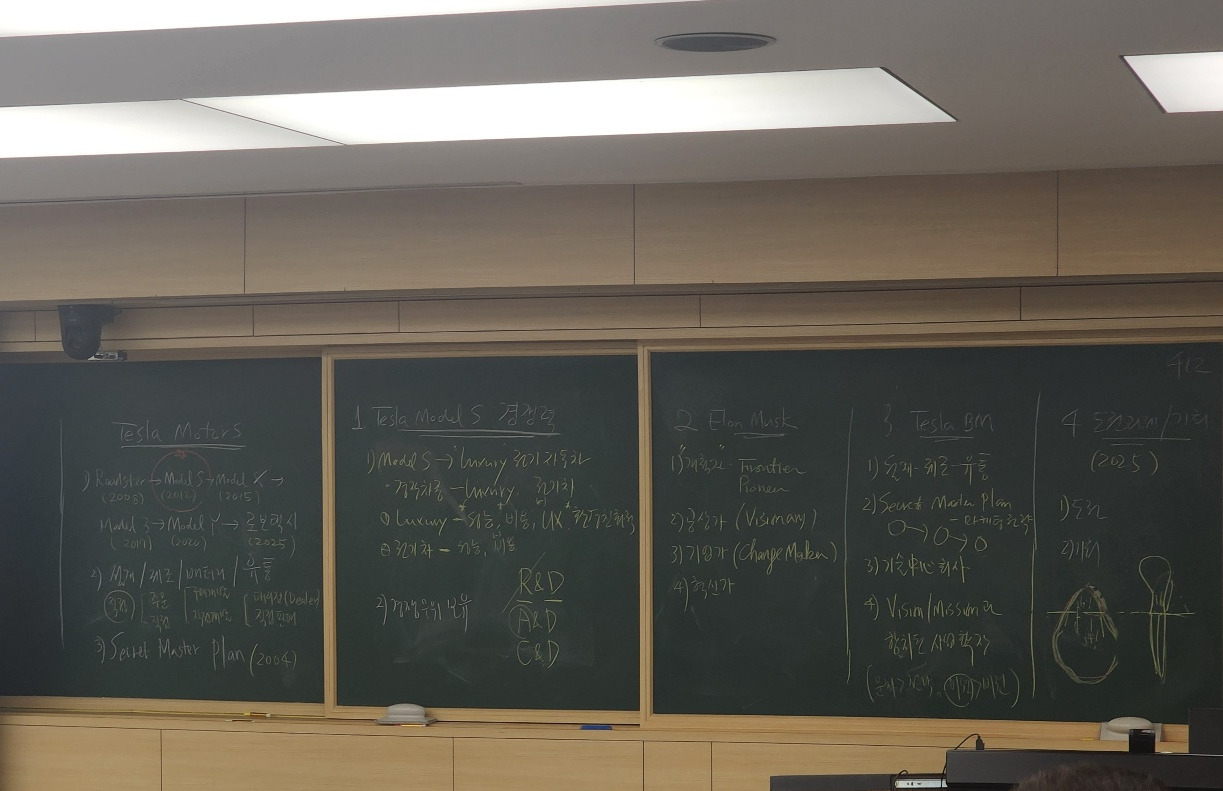 Tesla Motors
1) Roadster → Model S → Model X →
(2008) (2012) (2015)
Model 3 → Model Y → 로보택시
(2017) (2020) (2025)
2) 설계 / 제조 / 배터리 / 유통
직접
대리점 (Dealer)
직접판매
3) Secret Master Plan (2004)
1 Tesla Model S 경쟁력
1) Model S → Luxury 전기자동차
• 경쟁차종 - Luxury, 전기차
① Luxury - 성능, 비용, UX,
② 전기차 - 성능, 비용
2) 경쟁우위 보유
R&D
A&D
C&D
2. Elon Musk
1) "개척자" - Frontier
Pioneer
2) 몽상가 (Visionary)
3) 기업가 (Change Maker)
4) 혁신가
3. Tesla BM
1) 설계 - 제조 - 유통
2) Secret Master Plan
- 단계적 전략
3) 기술中心회사
4) Vision/Mission과
합치된 사업확장
412
4. 도전과제/기회
(2025)
1) 도전
2) 기회